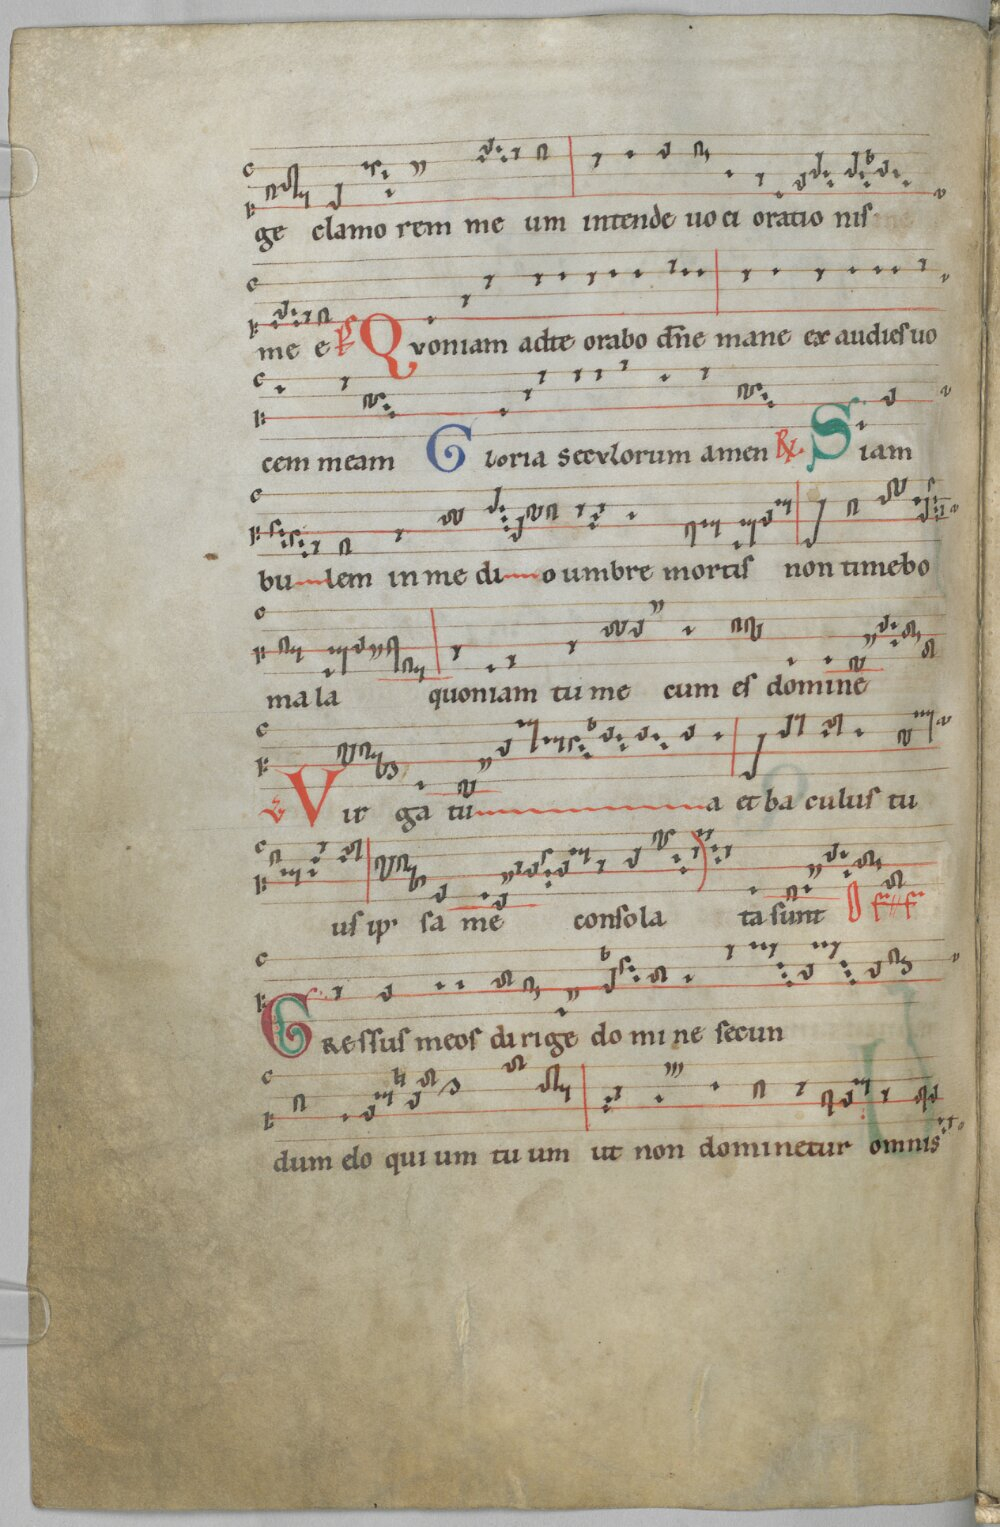 ge clamorem meum intende uoci orationis
me e Ps Quoniam ad te orabo dñe mane exaudies uo
cem meam Gloria seculorum amen R Si am
bulem in medio umbre mortis non timebo
mala quoniam tu me cum es domine
V Virga tua et baculus tu
us ip sa me consola ta sunt
Gressus meos dirige domine secun
dum eloquium tuum ut non dominetur omnis